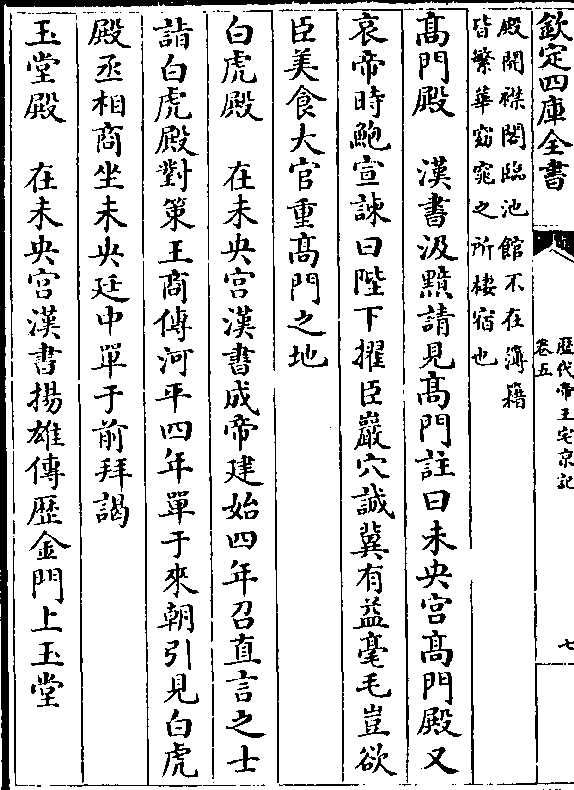 欽定四庫全書
歴代帝王宅京記
卷五
七
殿開襟閣臨池館不在簿籍
皆繁華窈窕之所棲宿也
髙門殿　漢書汲黯請見髙門註曰未央宫髙門殿又
哀帝時鮑宣諫曰陛下擢臣巖穴誠冀有益毫毛豈欲
臣美食大官重髙門之地
白虎殿　在未央宫漢書成帝建始四年召直言之士
詣白虎殿對策王商傳河平四年單于來朝引見白虎
殿丞相商坐未央廷中單于前拜謁
玉堂殿　在未央宫漢書揚雄傳歴金門上玉堂